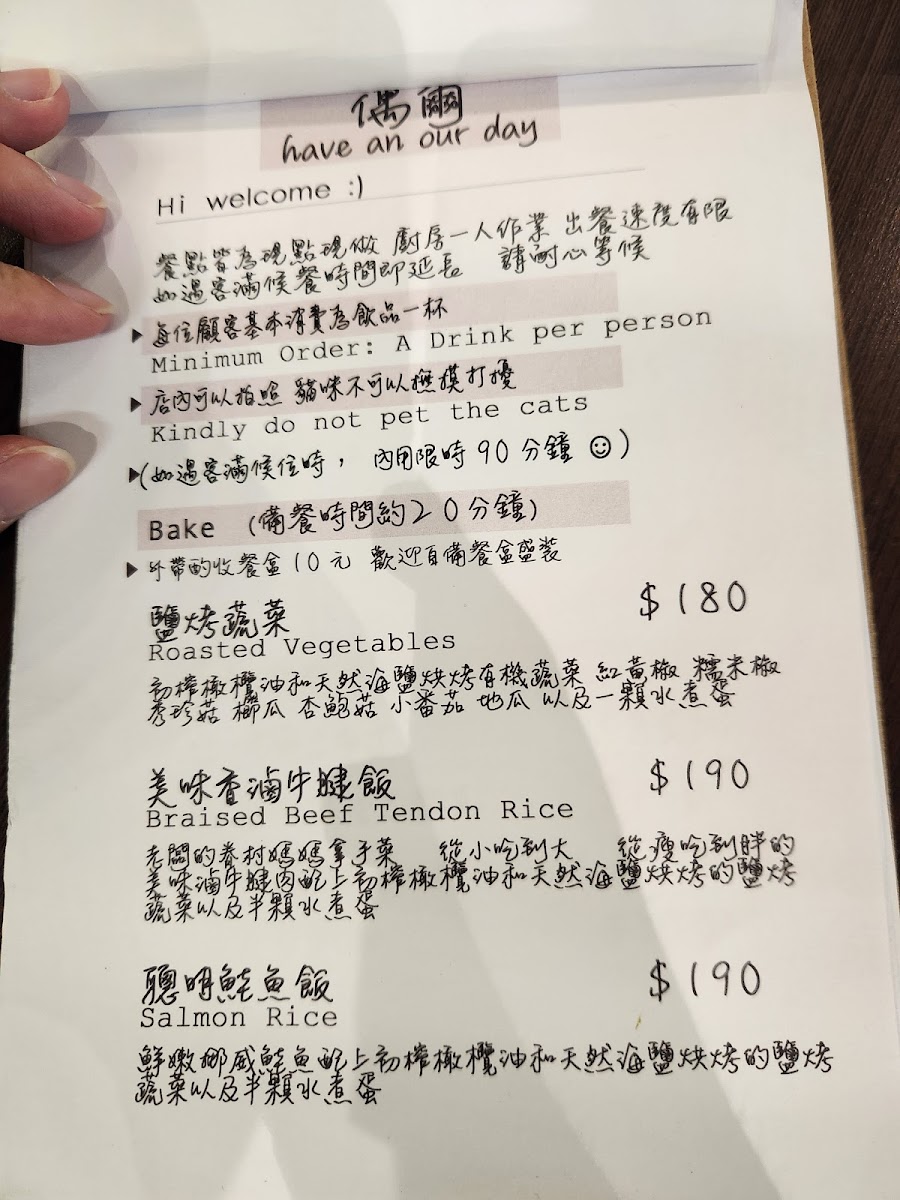 偶爾
have an our day
Hi welcome :)
餐點皆為現點現做 廚房一人作業 出餐速度有限
如遇客滿候餐時間即延長 請耐心等候
▶每位顧客基本消費為飲品一杯
Minimum Order: A Drink per person
▶店內可以拍照 貓咪不可以撫摸打擾
Kindly do not pet the cats
▶(如遇客滿候位時, 內用限時90分鐘☺)
Bake (備餐時間約20分鐘)
▶外帶酌收餐盒10元 歡迎自備餐盒盛裝
鹽烤蔬菜 $180
Roasted Vegetables
初榨橄欖油和天然海鹽烘烤有機蔬菜 紅黃椒 糯米椒
秀珍菇 櫛瓜 杏鮑菇 小番茄 地瓜 以及一顆水煮蛋
美味香滷牛腱飯 $190
Braised Beef Tendon Rice
老闆的眷村媽媽拿手菜 從小吃到大 從瘦吃到胖的
美味滷牛腱肉配上初榨橄欖油和天然海鹽烘烤的鹽烤
蔬菜以及半顆水煮蛋
聰明鮭魚飯 $190
Salmon Rice
鮮嫩挪威鮭魚配上初榨橄欖油和天然海鹽烘烤的鹽烤
蔬菜以及半顆水煮蛋